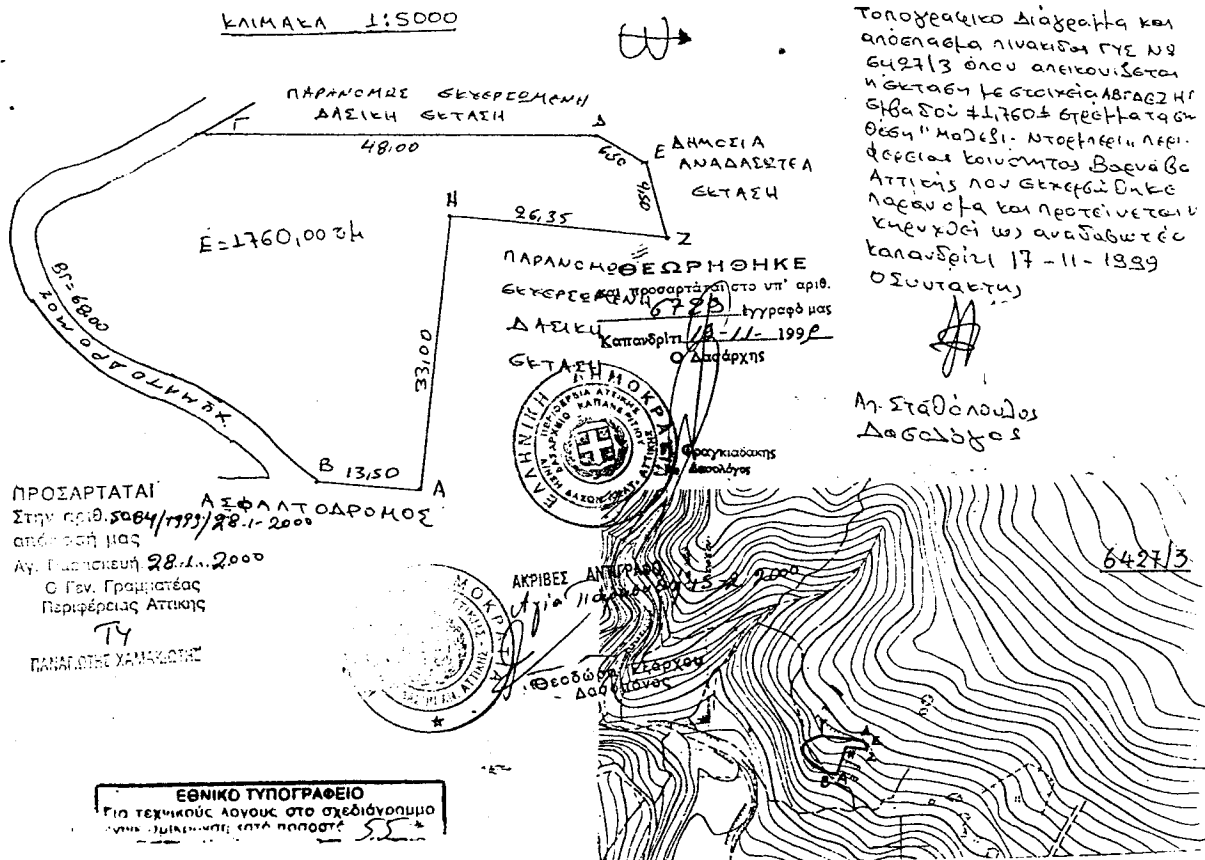 ΚΛΙΜΑΚΑ 1:5000
Τοπογραφικο Διάγραμμα και
απόσπασμα πινακίδος ΓΥΣ Νο
6427/3 όπου απεικονίζεται
η έκταση με στοιχεία ΑΒΓΔΕΖΗ
εμβαδού 1,760 στρέμματα
θέση "
φέρειας κοινότητος Βαρνάβα
Αττικής που εκχερσώθηκε
παράνομα και προτείνεται ν
κηρυχθεί ως αναδασωτέα
Καπανδρίτι 17-11-1999
Ο Συντάκτης
Αγ. Σταθόπουλος
Δασολόγος
ΠΑΡΑΝΟΜΩΣ ΕΚΧΕΡΣΩΜΕΝΗ
ΔΑΣΙΚΗ ΕΚΤΑΣΗ
Γ
48,00
Δ
6,50
Ε
ΔΗΜΟΣΙΑ
ΑΝΑΔΑΣΩΤΕΑ
ΕΚΤΑΣΗ
9,50
Ζ
Η
26,35
Ε=1760,00 τμ
ΒΓ=68,00
ΧΩΜΑΤΟΔΡΟΜΟΣ
33,00
Β 13,50 Α
ΑΣΦΑΛΤΟΔΡΟΜΟΣ
ΠΑΡΑΝΟΜΩΣ
ΕΚΧΕΡΣΩΜΕΝΗ
ΔΑΣΙΚΗ
ΕΚΤΑΣΗ
ΘΕΩΡΗΘΗΚΕ
και προσαρτάται στο υπ' αριθ.
6729 έγγραφό μας
Καπανδρίτι -11- 199
Ο Δασάρχης
Φραγκιαδακης
Δασολόγος
ΕΛΛΗΝΙΚΗ ΔΗΜΟΚΡΑΤΙΑ
ΠΕΡΙΦΕΡΕΙΑ ΑΤΤΙΚΗΣ
ΔΑΣΑΡΧΕΙΟ ΚΑΠΑΝΔΡΙΤΙΟΥ
ΠΡΟΣΑΡΤΑΤΑΙ
Στην αριθ. 5064/1999/28-1-2000
απόφασή μας
Αγ. Παρασκευή 28.1.2000
Ο Γεν. Γραμματέας
Περιφέρειας Αττικης
ΤΥ
ΑΚΡΙΒΕΣ ΑΝΤΙΓΡΑΦΟ
Αγία Παρασκευή 2000
Θεοδώρα
Δασοπόνος
6427/3
ΕΘΝΙΚΟ ΤΥΠΟΓΡΑΦΕΙΟ
Για τεχνικούς λόγους στο σχεδιάγραμμα
έγινε σμίκρυνση κατά ποσοστό 55